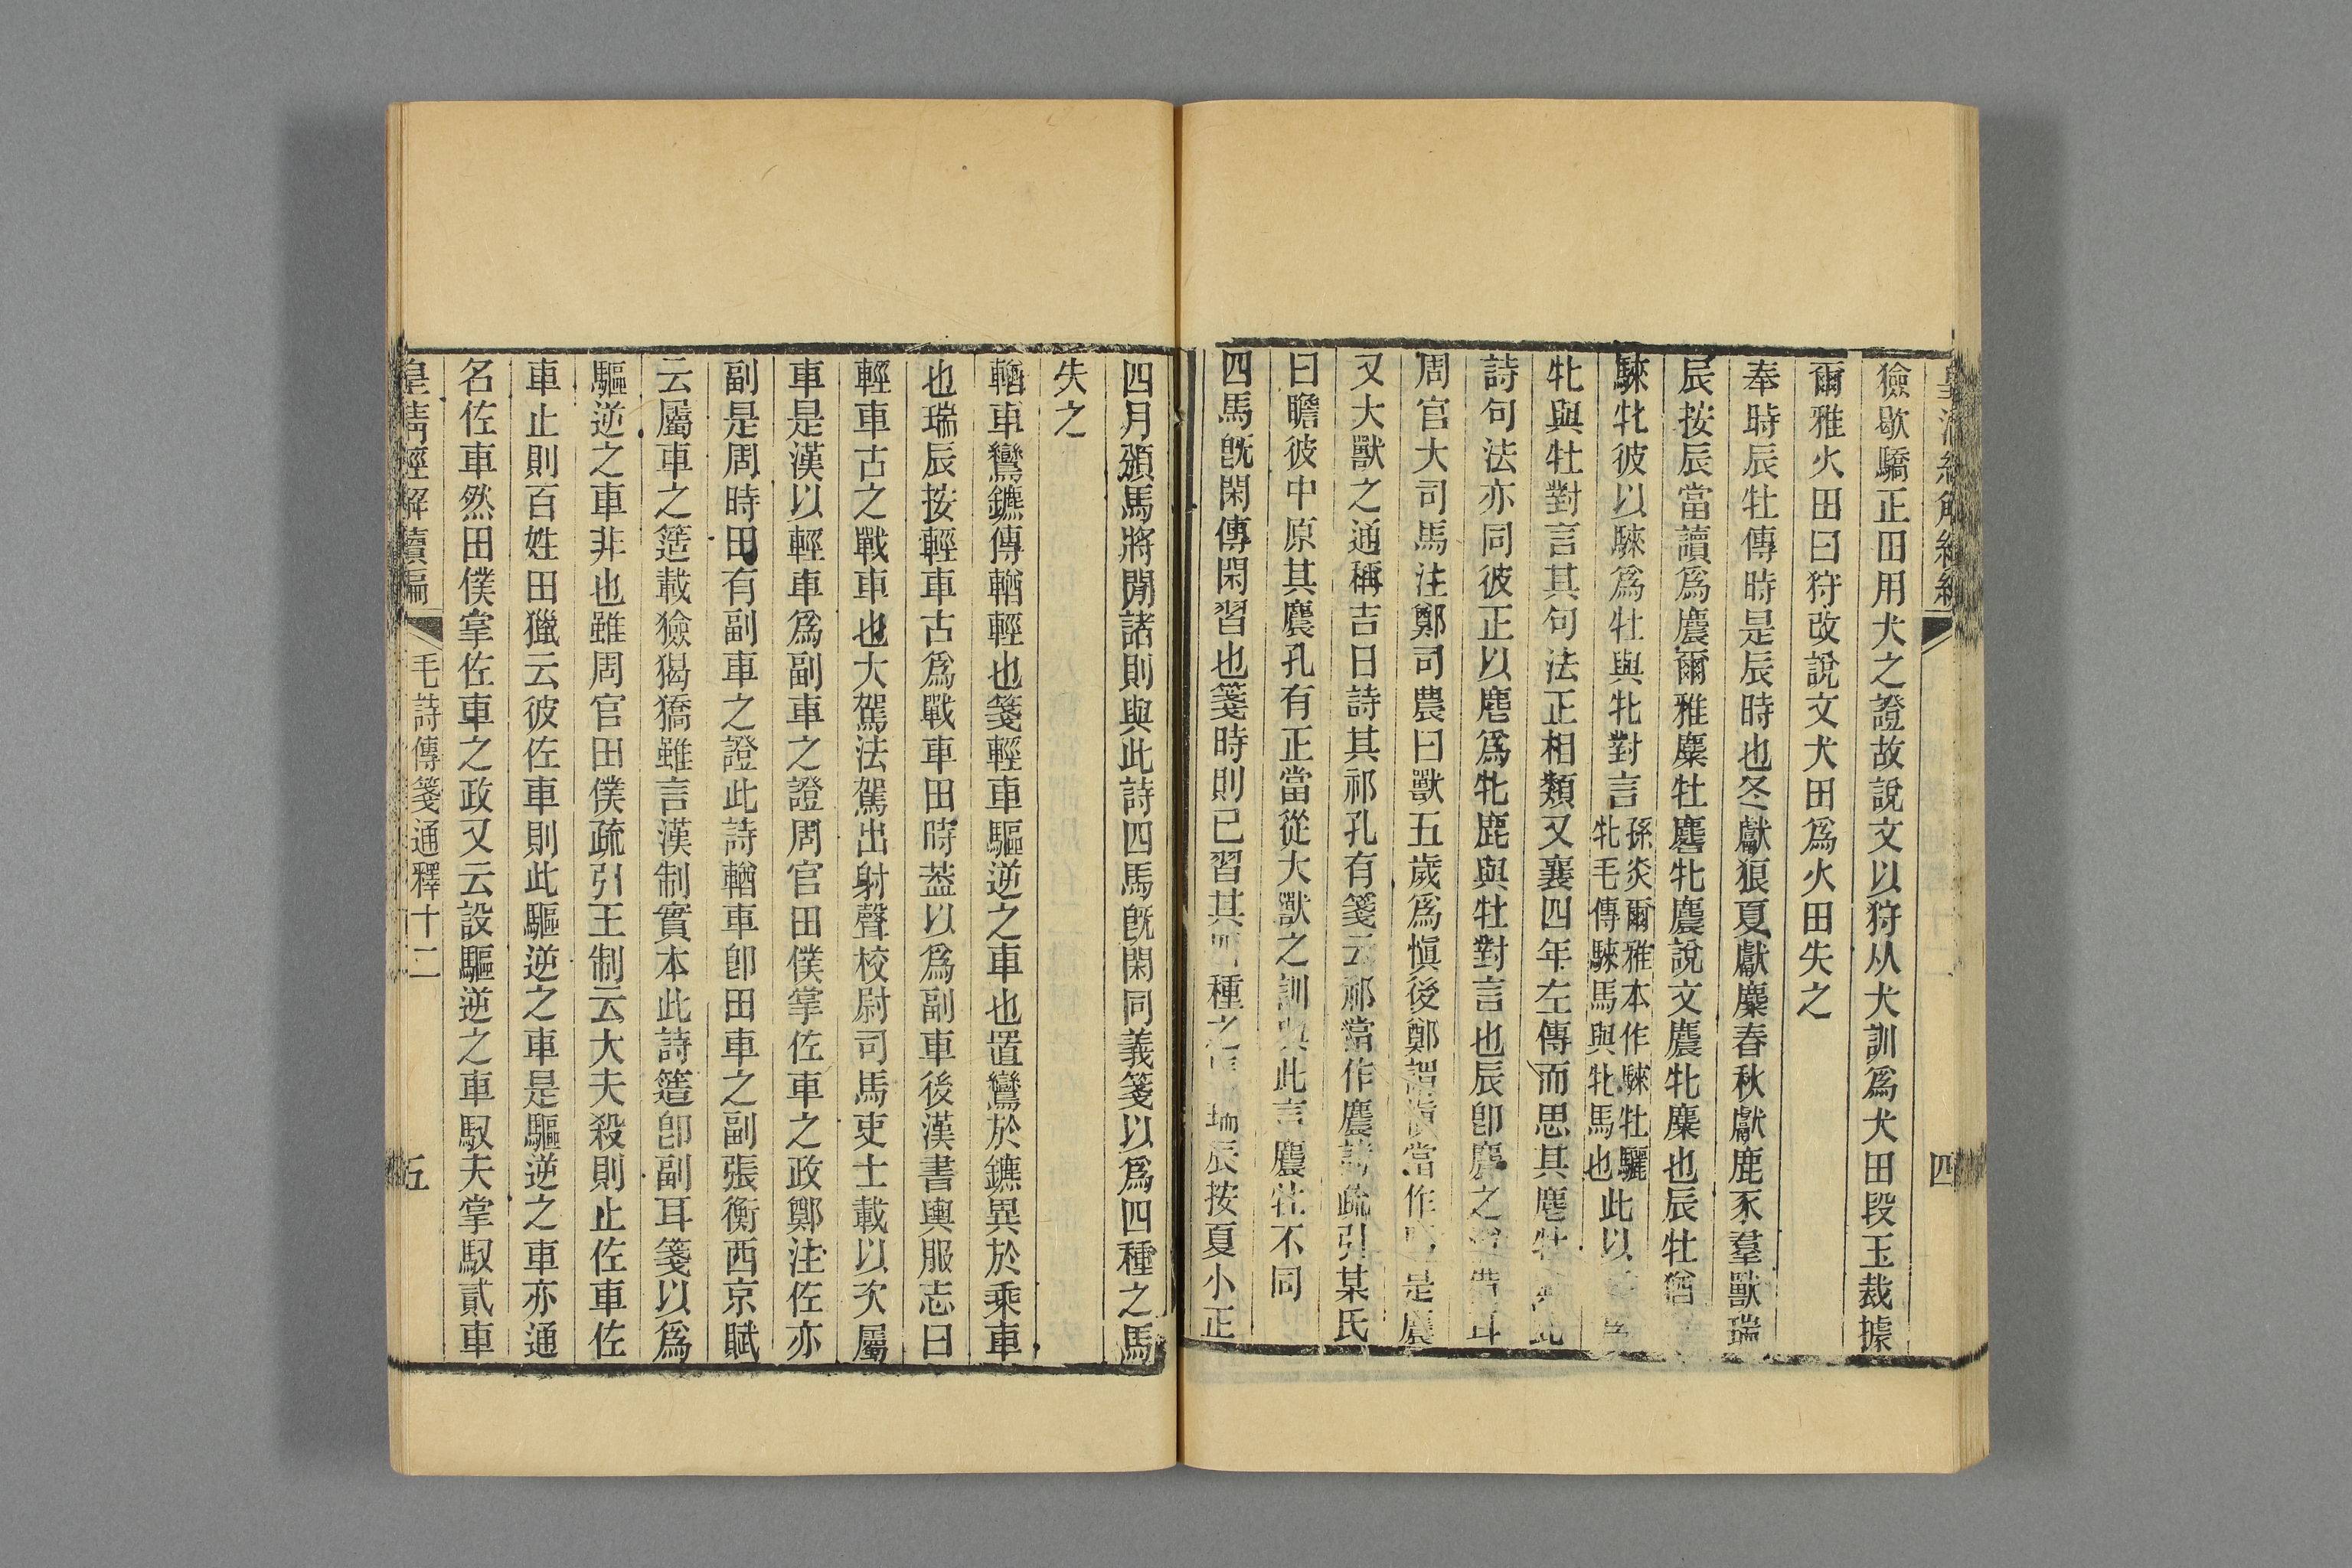 四
獫歇驕正田用犬之證故說文以狩从犬訓爲犬田段玉裁據
爾雅火田曰狩改說文犬田爲火田失之
奉時辰牡傳時是辰時也冬獻狼夏獻麋春秋獻鹿豕羣獸瑞
辰按辰當讀爲麎爾雅麋牡麔牝麎說文麎牝麋也辰牡猶
騋牝彼以騋爲牡與牝對言孫炎爾雅本作騋牡驪牝毛傳騋馬與牝馬也此以
牝與牡對言其句法正相類又襄四年左傳而思其麀牡
詩句法亦同彼正以麀爲牝鹿與牡對言也辰卽麎之耳
周官大司馬注鄭司農曰獸五歲爲愼後鄭當作是麎
又大獸之通稱吉日詩其祁孔有箋云祁當作麎疏引某氏
曰瞻彼中原其麎孔有正當從大獸之訓與此言麎牡不同
四馬旣閑傳閑習也箋時則已習其種之辰按夏小正
四月頒馬將閒諸則與此詩四馬旣閑同義箋以爲四種之馬
失之
輶車鸞鑣傳輶輕也箋輕車驅逆之車也置鸞於鑣異於乘車
也瑞辰按輕車古爲戰車田時葢以爲副車後漢書輿服志曰
輕車古之戰車也大駕法駕出射聲校尉司馬吏士載以次屬
車是漢以輕車爲副車之證周官田僕掌佐車之政鄭注佐亦
副是周時田有副車之證此詩輶車卽田車之副張衡西京賦
云屬車之簉載獫猲獢雖言漢制實本此詩簉卽副耳箋以爲
驅逆之車非也雖周官田僕疏引王制云大夫殺則止佐車佐
車止則百姓田獵云彼佐車則此驅逆之車是驅逆之車亦通
名佐車然田僕掌佐車之政又云設驅逆之車馭夫掌馭貳車
皇淸經解續編 毛詩傳箋通釋十二 五